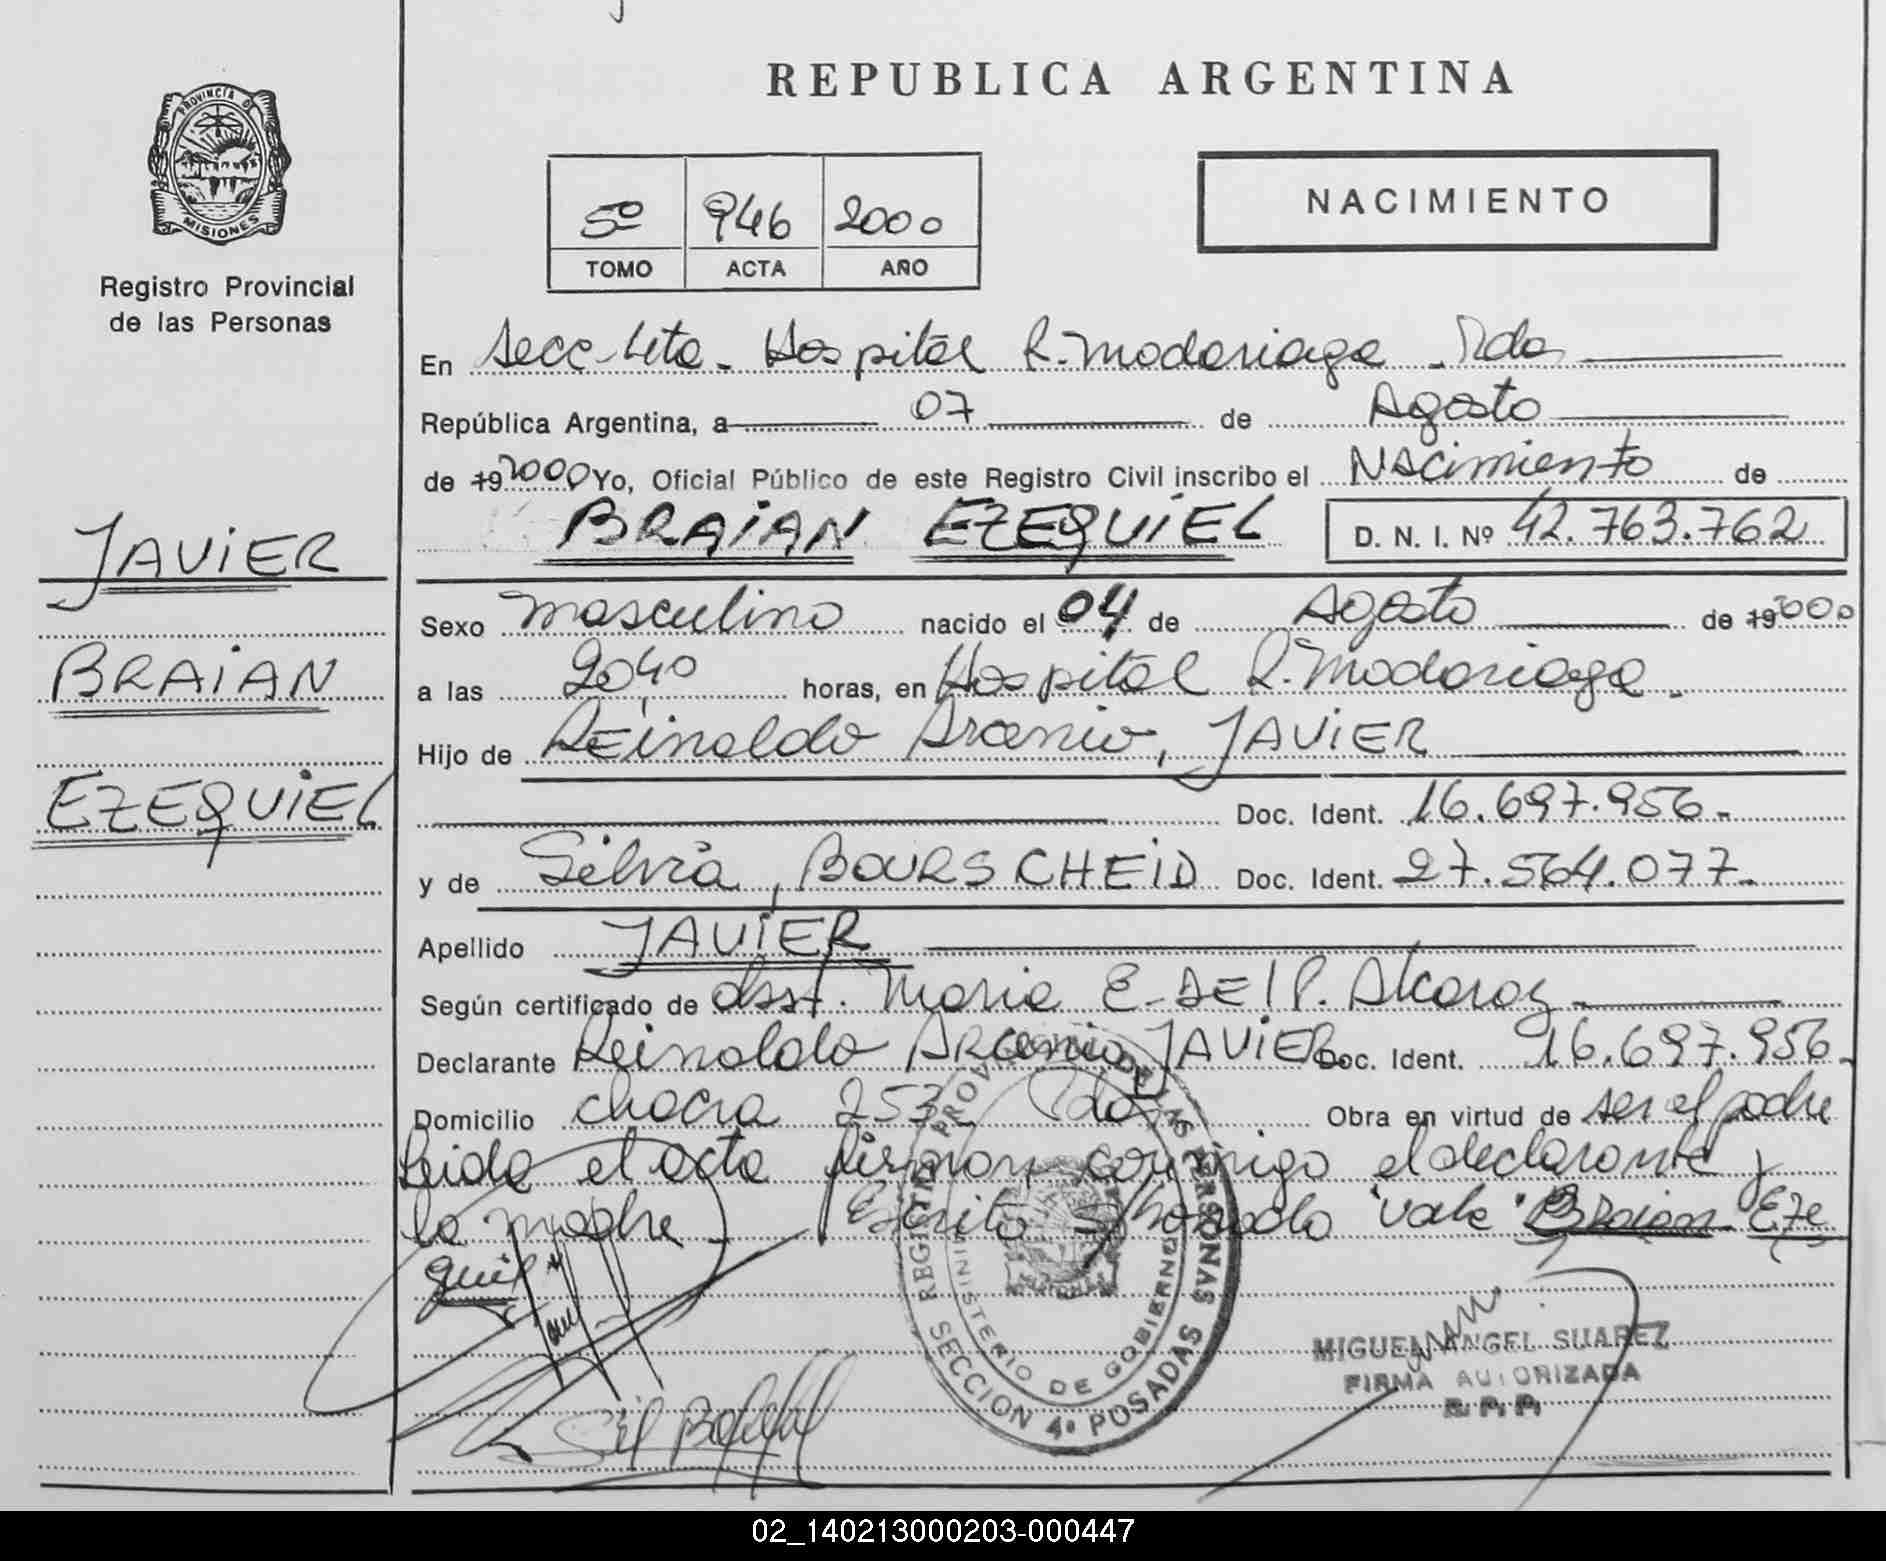 REPUBLICA ARGENTINA
PROVINCIA D
MISIONES
Registro Provincial
de las Personas
5º 946 2000
TOMO ACTA AÑO
NACIMIENTO
En Secc. 4ta. Hospital R. Madariaga - Pdas
República Argentina, a 07 de Agosto
de 192000 Yo, Oficial Público de este Registro Civil inscribo el Nacimiento de
BRAIAN EZEQUIEL D. N. I. Nº 42.763.762
JAVIER
BRAIAN
EZEQUIEL
Sexo masculino nacido el 04 de Agosto de 192000
a las 2040 horas, en Hospital R. Madariaga.
Hijo de Reinaldo Arcenio, JAVIER
Doc. Ident. 16.697.956.-
y de Silvia, BOURSCHEID Doc. Ident. 27.564.077.-
Apellido JAVIER
Según certificado de obst. Maria E. DEl P. Alcaraz
Declarante Reinaldo Arcenio JAVIER Doc. Ident. 16.697.956.
Domicilio chacra 253 Pdas Obra en virtud de ser el padre
Leida el acta firman conmigo el declarante y
la madre Escrito s/borrado "vale" Braian Eze
quiel
REGISTRO PROVINCIAL DE LAS PERSONAS
MINISTERIO DE GOBIERNO
SECCION 4ª POSADAS
MIGUEL ANGEL SUAREZ
FIRMA AUTORIZADA
R. P. P.
02_140213000203-000447